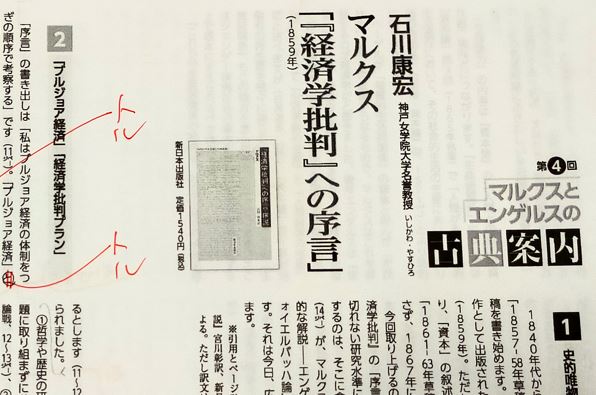 第4回
マルクスと
エンゲルスの
古典案内
石川康宏 神戸女学院大学名誉教授 いしかわ・やすひろ
マルクス
『『経済学批判』への序言』
(1859年)
新日本出版社 定価1540円(税込)
2 「ブルジョア経済」「経済学批判プラン」
「序言」の書き出しは「私はブルジョア経済の体制をつ
ぎの順序で考察する」です(11㌻)。「ブルジョア経済」
トル
トル
1 史的唯物
1840年代から
「1857-58年草稿
稿を書き始めます。
作として出版された
(1859年)。ただ
り、「資本」の叙述
「1861-63年草
さず、1867年に
今回取り上げるの
済学批判』の「序言
切れない研究水準に
するのは、そこに含
(14㌻)が、マルク
的な解説――エンゲ
ォイエルバッハ論
それは今日、広
ます。
※引用とページ
説』宮川彰訳、新日
よる。ただし訳文
るとします(11~12
られました。
①哲学や歴史の研
題に取り組まずに
論戦、12~13㌻)、②